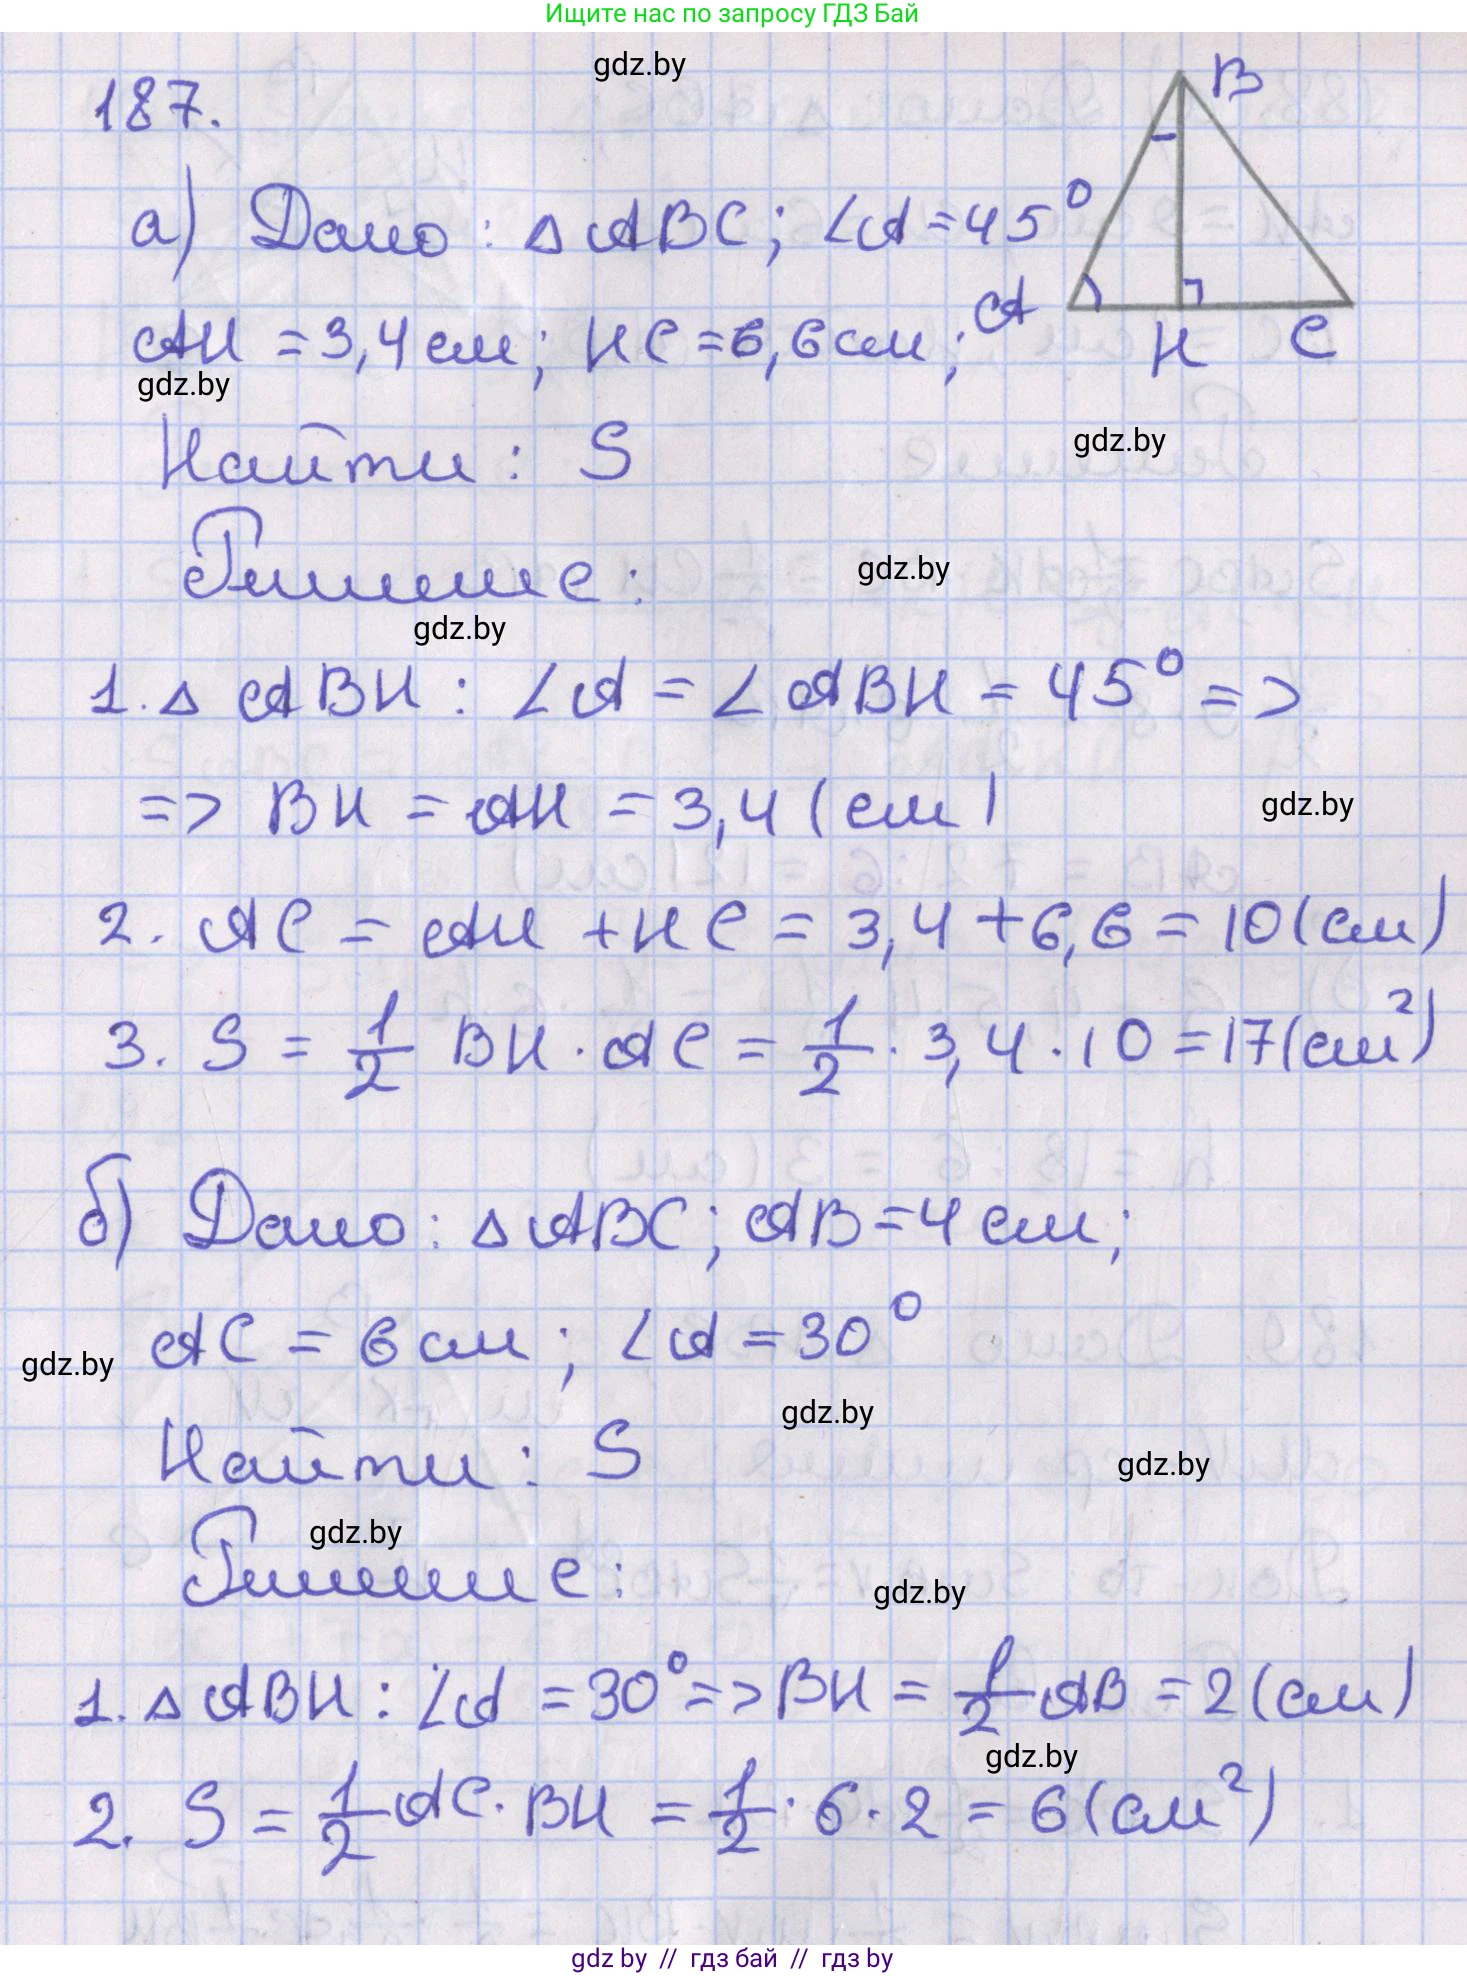 Ищите нас по запросу ГДЗ Бай
gdz.by
187.
B
а) Дано: △ABC; ∠A=45°
A
H
C
AH = 3,4 см; HC = 6,6 см;
gdz.by
gdz.by
Найти: S
Решение:
gdz.by
gdz.by
1. △ ABH: ∠A = ∠ABH = 45° =>
=> BH = AH = 3,4 (см)
gdz.by
2. AC = AH + HC = 3,4 + 6,6 = 10 (см)
3. S = 1/2 BH · AC = 1/2 · 3,4 · 10 = 17 (см²)
б) Дано: △ABC; AB = 4 см;
AC = 6 см; ∠A = 30°
gdz.by
gdz.by
Найти: S
gdz.by
gdz.by
Решение:
gdz.by
1. △ ABH: ∠A = 30° => BH = 1/2 AB = 2 (см)
gdz.by
2. S = 1/2 AC · BH = 1/2 · 6 · 2 = 6 (см²)
gdz.by // гдз бай // гдз by